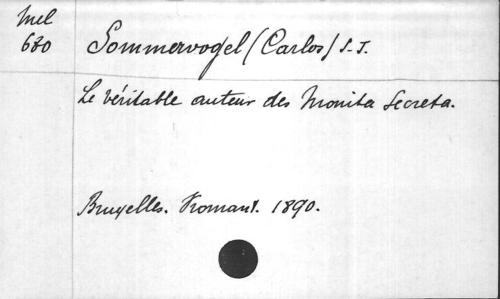 Mel
680
Sommervogel (Carlos) S.J.
Le véritable auteur des Monita Secreta.
Bruxelles. Vromant. 1890.